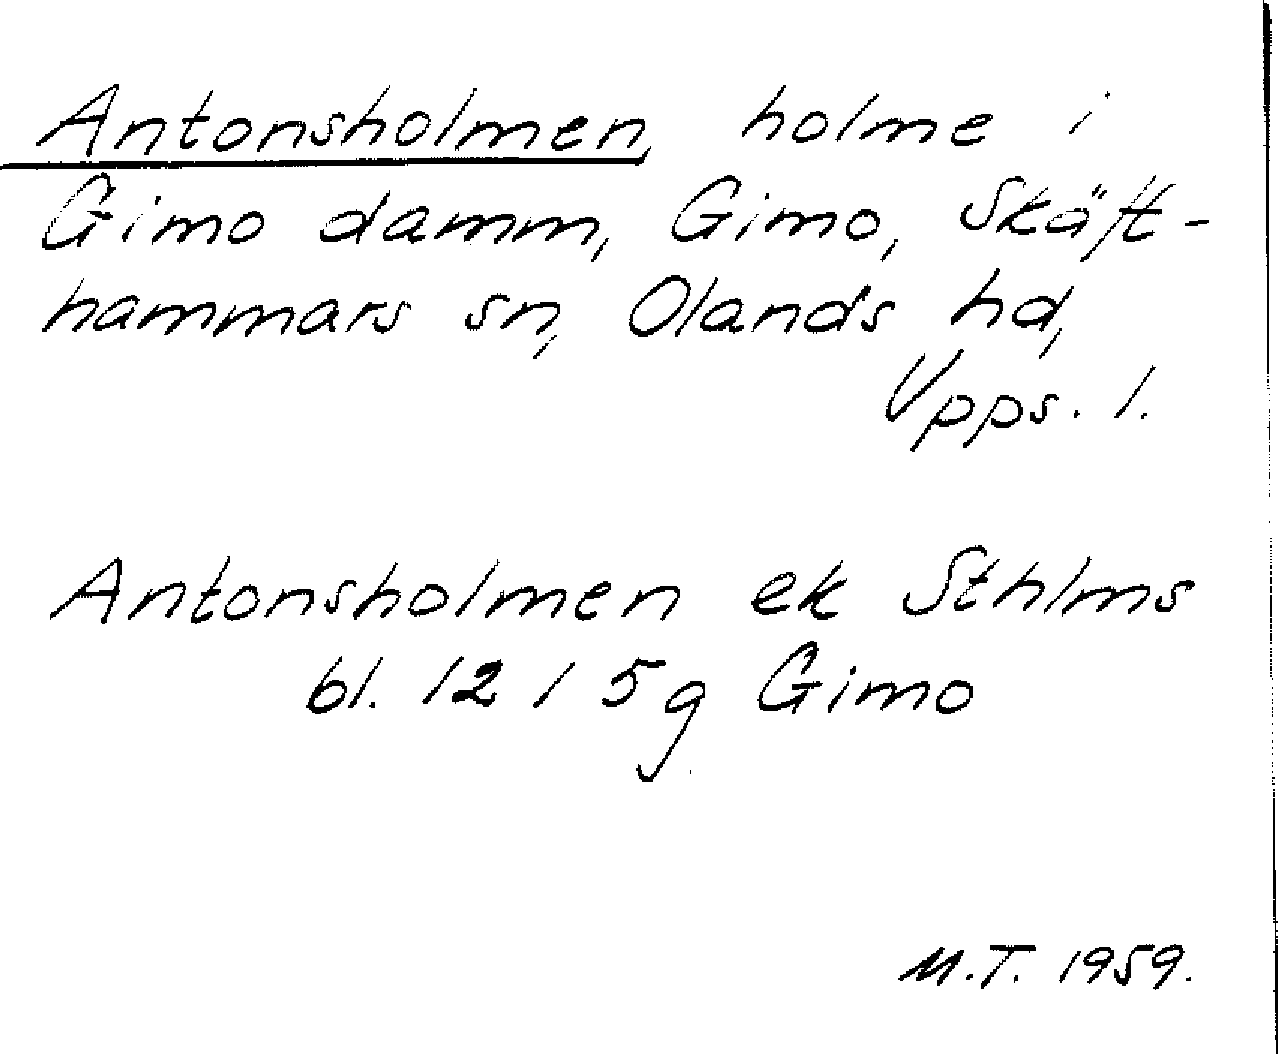 Antonsholmen, holme i
Gimo damm, Gimo, Skäft-
hammars sn, Olands hd,
Upps. l.
Antonsholmen ek Sthlms
bl. 12 I 5g Gimo
M.T. 1959.